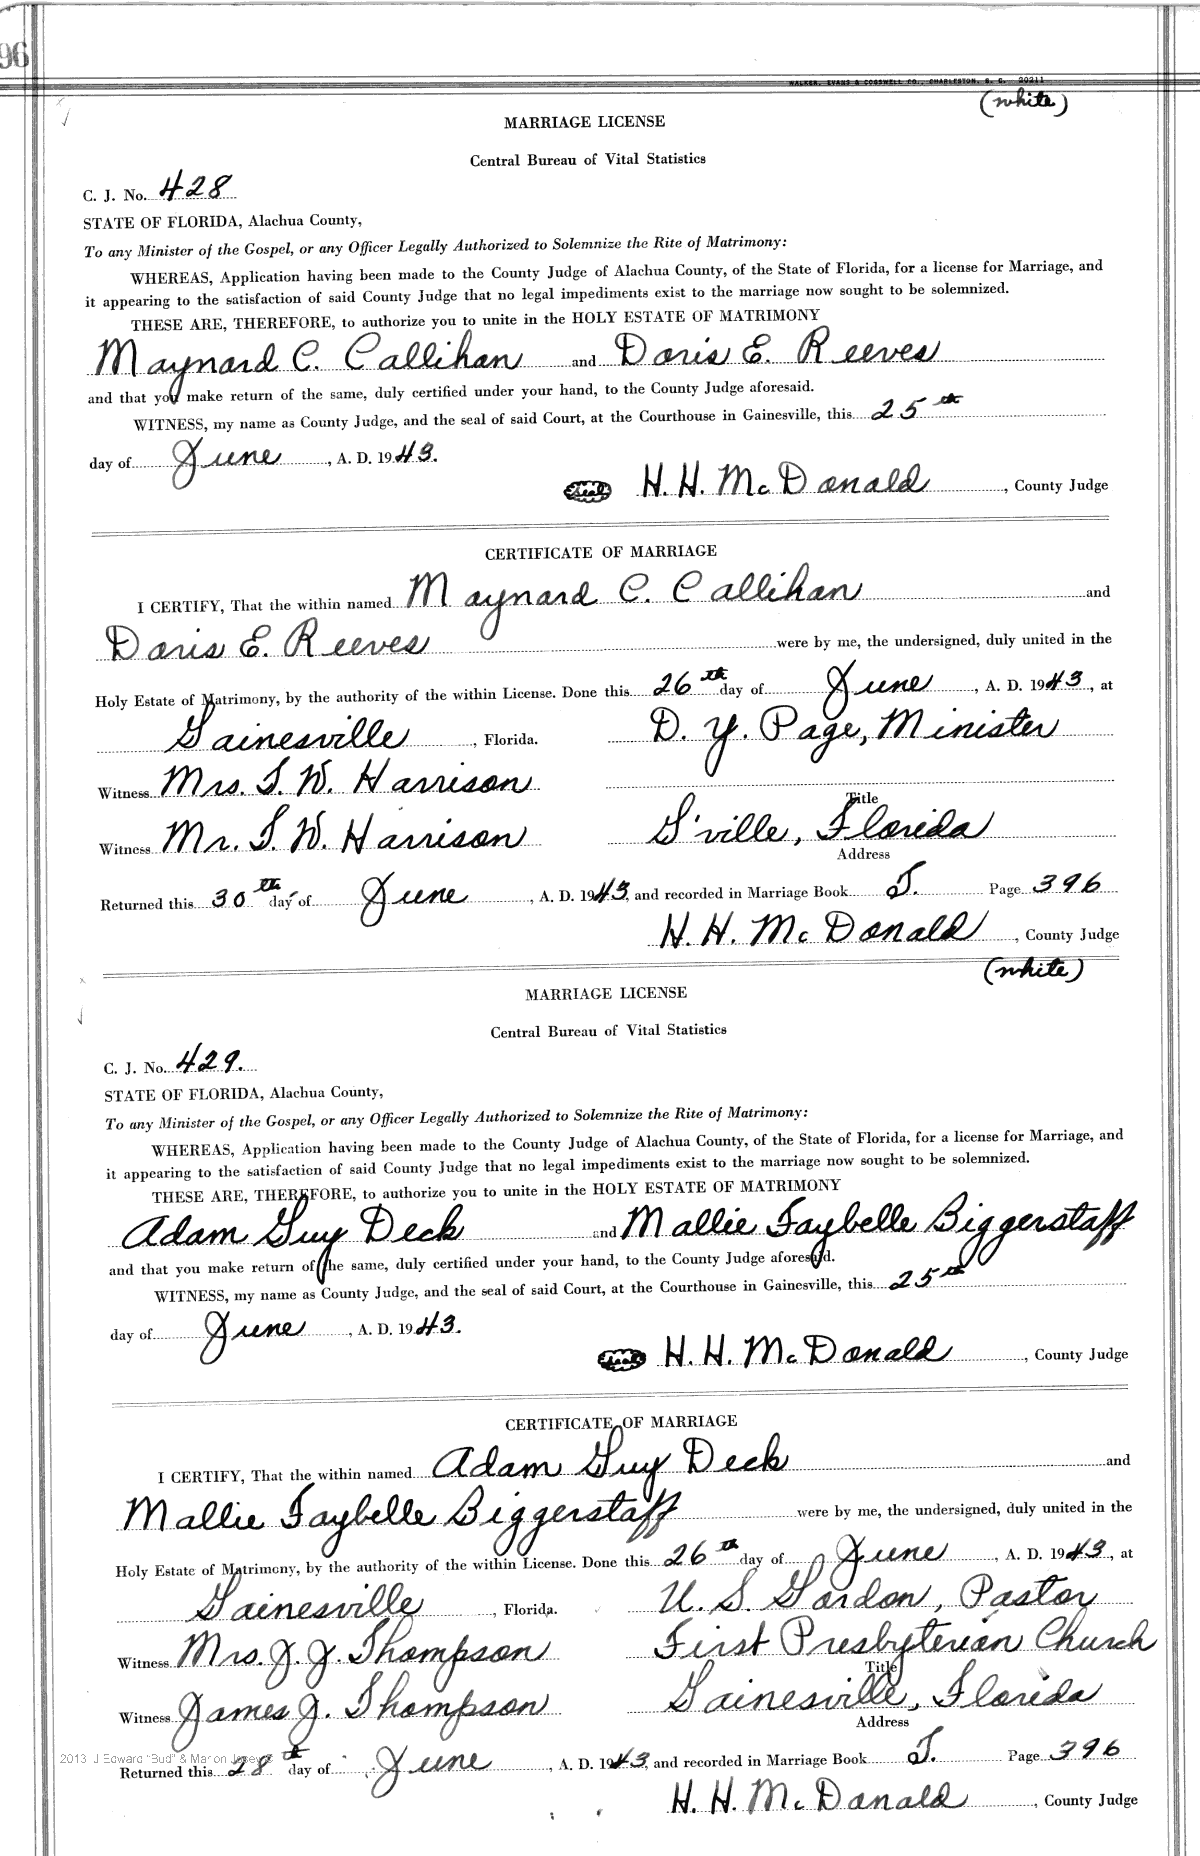 96
WALKER, EVANS & COGSWELL CO., CHARLESTON, S. C. 20211
(white)
MARRIAGE LICENSE
Central Bureau of Vital Statistics
C. J. No. 428
STATE OF FLORIDA, Alachua County,
To any Minister of the Gospel, or any Officer Legally Authorized to Solemnize the Rite of Matrimony:
WHEREAS, Application having been made to the County Judge of Alachua County, of the State of Florida, for a license for Marriage, and
it appearing to the satisfaction of said County Judge that no legal impediments exist to the marriage now sought to be solemnized.
THESE ARE, THEREFORE, to authorize you to unite in the HOLY ESTATE OF MATRIMONY
Maynard C. Callihan and Doris E. Reeves
and that you make return of the same, duly certified under your hand, to the County Judge aforesaid.
WITNESS, my name as County Judge, and the seal of said Court, at the Courthouse in Gainesville, this 25th
day of June, A. D. 1943.
seal H. H. McDonald, County Judge
CERTIFICATE OF MARRIAGE
I CERTIFY, That the within named Maynard C. Callihan and
Doris E. Reeves were by me, the undersigned, duly united in the
Holy Estate of Matrimony, by the authority of the within License. Done this 26th day of June, A. D. 1943, at
Gainesville, Florida. D. Y. Page, Minister
Witness Mrs. T. W. Harrison
Title
Witness Mr. T. W. Harrison G'ville, Florida
Address
Returned this 30th day of June, A. D. 1943, and recorded in Marriage Book T. Page 396
H. H. McDonald, County Judge
(white)
MARRIAGE LICENSE
Central Bureau of Vital Statistics
C. J. No. 429.
STATE OF FLORIDA, Alachua County,
To any Minister of the Gospel, or any Officer Legally Authorized to Solemnize the Rite of Matrimony:
WHEREAS, Application having been made to the County Judge of Alachua County, of the State of Florida, for a license for Marriage, and
it appearing to the satisfaction of said County Judge that no legal impediments exist to the marriage now sought to be solemnized.
THESE ARE, THEREFORE, to authorize you to unite in the HOLY ESTATE OF MATRIMONY
Adam Guy Deck and Mallie Faybelle Biggerstaff
and that you make return of the same, duly certified under your hand, to the County Judge aforesaid.
WITNESS, my name as County Judge, and the seal of said Court, at the Courthouse in Gainesville, this 25th
day of June, A. D. 1943.
seal H. H. McDonald, County Judge
CERTIFICATE OF MARRIAGE
I CERTIFY, That the within named Adam Guy Deck and
Mallie Faybelle Biggerstaff were by me, the undersigned, duly united in the
Holy Estate of Matrimony, by the authority of the within License. Done this 26th day of June, A. D. 1943, at
Gainesville, Florida. U. S. Gordon, Pastor
Witness Mrs. J. J. Thompson First Presbyterian Church
Title
Witness James J. Thompson Gainesville, Florida
Address
2013 J Edward "Bud" & Marion Josey ©
Returned this 28th day of June, A. D. 1943, and recorded in Marriage Book T. Page 396
H. H. McDonald, County Judge